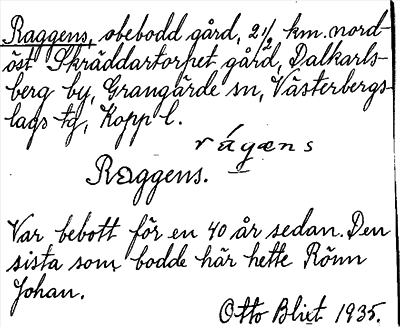 Raggens, obebodd gård, 2½ km. nord-
öst Skräddartorpet gård, Dalkarls-
berg by, Grangärde sn, Västerbergs-
lags tg, Kopp l.
rágæns
Raggens.
Var bebott för en 40 år sedan. Den
sista som bodde här hette Rönn
Johan.
Otto Blixt 1935.